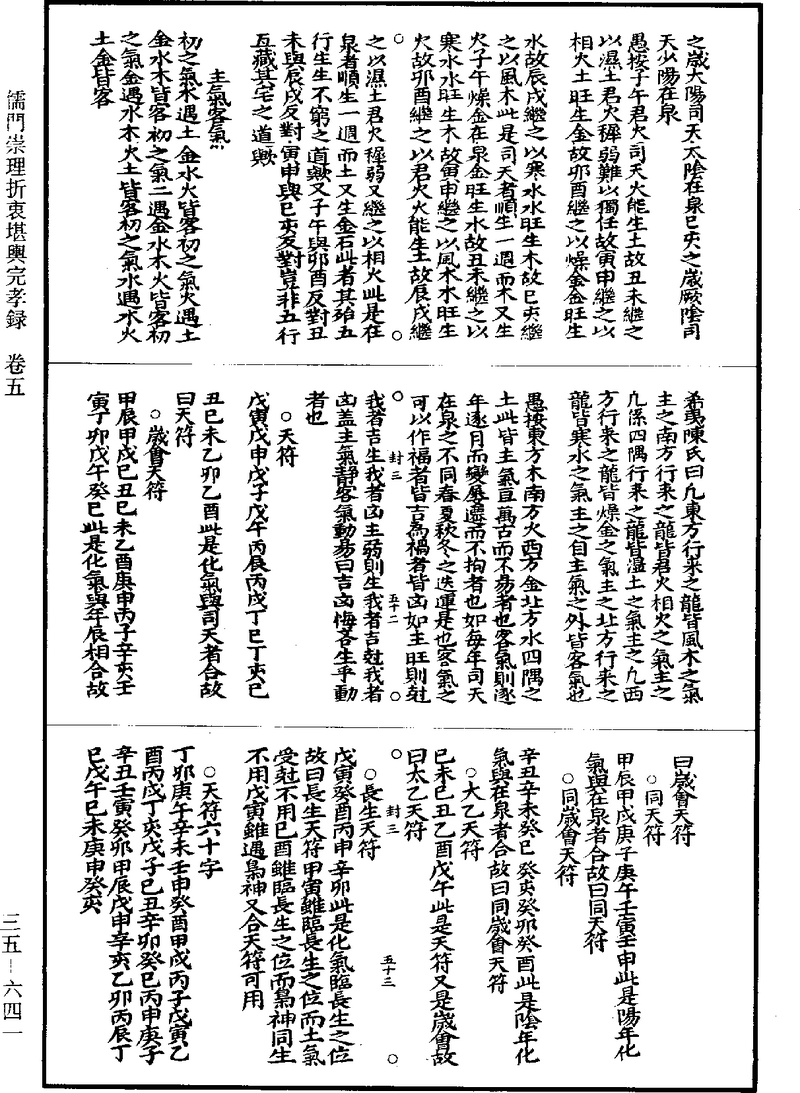 儒門崇理折衷堪輿完孝録　卷五
三五－六四一
之歲大陽司天太陰在泉巳亥之歲厥陰司
天少陽在泉
愚按子午君火司天火能生土故丑未繼之
以濕土君火穉弱難以獨任故寅申繼之以
相火土旺生金故卯酉繼之以燥金金旺生
水故辰戌繼之以寒水水旺生木故巳亥繼
之以風木此是司天者順生一週而木又生
火子午燥金在泉金旺生水故丑未繼之以
寒水水旺生木故寅申繼之以風木木旺生
火故卯酉繼之以君火火能生土故辰戌繼
之以濕土君火穉弱又繼之以相火此是在
泉者順生一週而土又生金石此者其殆五
行生生不窮之道歟又子午與卯酉反對丑
未與辰戌反對寅申與巳亥反對豈非五行
互藏其宅之道歟
主氣客氣
初之氣木遇土金水火皆客初之氣火遇土
金水木皆客初之氣二遇金水木火皆客初
之氣金遇水木火土皆客初之氣水遇木火
土金皆客
希夷陳氏曰凢東方行来之龍皆風木之氣
主之南方行来之龍皆君火相火之氣主之
凢係四隅行来之龍皆濕土之氣主之凢西
方行来之龍皆燥金之氣主之北方行来之
龍皆寒水之氣主之自主氣之外皆客氣也
愚按東方木南方火西方金北方水四隅之
土此皆主氣亘萬古而不易者也客氣則逐
年逐月而變屢遷而不拘者也如每年司天
在泉之不同春夏秋冬之迭運是也客氣之
可以作福者皆吉為禍者皆凶如主旺則尅
封三　五十二
我者吉生我者凶主弱則生我者吉尅我者
凶盖主氣静客氣動易曰吉凶悔吝生乎動
者也
○天符
戊寅戊申戊子戊午丙辰丙戌丁巳丁亥己
丑己未乙卯乙酉此是化氣與司天者合故
曰天符
○歲會天符
甲辰甲戌己丑己未乙酉庚申丙子辛亥壬
寅丁卯戊午癸巳此是化氣與年辰相合故
曰歲會天符
○同天符
甲辰甲戌庚子庚午壬寅壬申此是陽年化
氣與在泉者合故曰同天符
○同歲會天符
辛丑辛未癸巳癸亥癸卯癸酉此是陰年化
氣與在泉者合故曰同歲會天符
○大乙天符
己未己丑乙酉戊午此是天符又是歲會故
曰太乙天符
封三　五十三
○長生天符
戊寅癸酉丙申辛卯此是化氣臨長生之位
故曰長生天符甲寅雖臨長生之位而土氣
受尅不用己酉雖臨長生之位而梟神同生
不用戊寅雖遇梟神又合天符可用
○天符六十字
丁卯庚午辛未壬申癸酉甲戌丙子戊寅乙
酉丙戌丁亥戊子己丑辛卯癸巳丙申庚子
辛丑壬寅癸卯甲辰戊申辛亥乙卯丙辰丁
巳戊午己未庚申癸亥